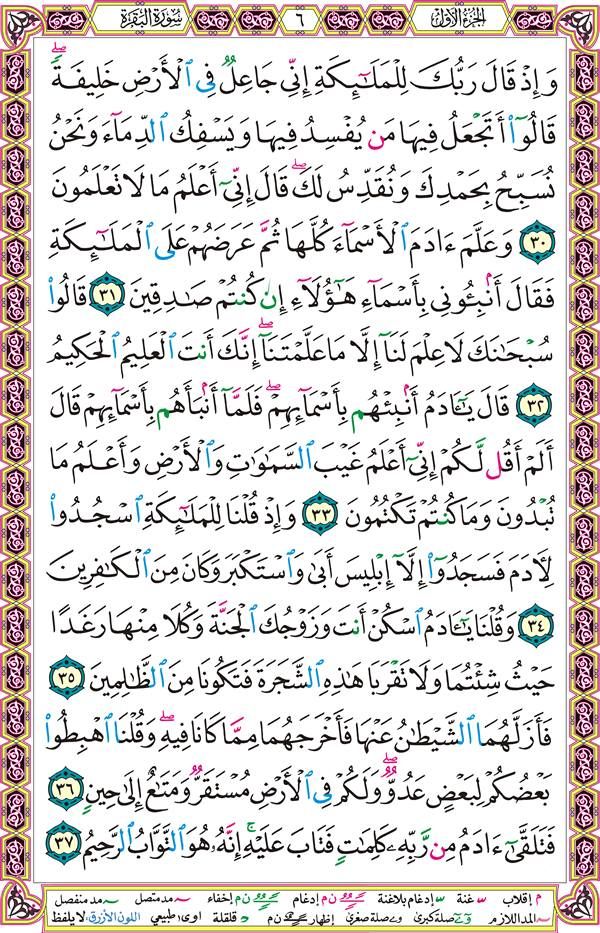 الجزء الأول
٦
سورة البقرة
وَإِذْ قَالَ رَبُّكَ لِلْمَلَـٰٓئِكَةِ إِنِّى جَاعِلٌ فِى ٱلْأَرْضِ خَلِيفَةً ۖ
قَالُوٓا۟ أَتَجْعَلُ فِيهَا مَن يُفْسِدُ فِيهَا وَيَسْفِكُ ٱلدِّمَآءَ وَنَحْنُ
نُسَبِّحُ بِحَمْدِكَ وَنُقَدِّسُ لَكَ ۖ قَالَ إِنِّىٓ أَعْلَمُ مَا لَا تَعْلَمُونَ
٣٠ وَعَلَّمَ ءَادَمَ ٱلْأَسْمَآءَ كُلَّهَا ثُمَّ عَرَضَهُمْ عَلَى ٱلْمَلَـٰٓئِكَةِ
فَقَالَ أَنۢبِـُٔونِى بِأَسْمَآءِ هَـٰٓؤُلَآءِ إِن كُنتُمْ صَـٰدِقِينَ ٣١ قَالُوا۟
سُبْحَـٰنَكَ لَا عِلْمَ لَنَآ إِلَّا مَا عَلَّمْتَنَآ ۖ إِنَّكَ أَنتَ ٱلْعَلِيمُ ٱلْحَكِيمُ
٣٢ قَالَ يَـٰٓـَٔادَمُ أَنۢبِئْهُم بِأَسْمَآئِهِمْ ۖ فَلَمَّآ أَنۢبَأَهُم بِأَسْمَآئِهِمْ قَالَ
أَلَمْ أَقُل لَّكُمْ إِنِّىٓ أَعْلَمُ غَيْبَ ٱلسَّمَـٰوَٰتِ وَٱلْأَرْضِ وَأَعْلَمُ مَا
تُبْدُونَ وَمَا كُنتُمْ تَكْتُمُونَ ٣٣ وَإِذْ قُلْنَا لِلْمَلَـٰٓئِكَةِ ٱسْجُدُوا۟
لِـَٔادَمَ فَسَجَدُوٓا۟ إِلَّآ إِبْلِيسَ أَبَىٰ وَٱسْتَكْبَرَ وَكَانَ مِنَ ٱلْكَـٰفِرِينَ
٣٤ وَقُلْنَا يَـٰٓـَٔادَمُ ٱسْكُنْ أَنتَ وَزَوْجُكَ ٱلْجَنَّةَ وَكُلَا مِنْهَا رَغَدًا
حَيْثُ شِئْتُمَا وَلَا تَقْرَبَا هَـٰذِهِ ٱلشَّجَرَةَ فَتَكُونَا مِنَ ٱلظَّـٰلِمِينَ ٣٥
فَأَزَلَّهُمَا ٱلشَّيْطَـٰنُ عَنْهَا فَأَخْرَجَهُمَا مِمَّا كَانَا فِيهِ ۖ وَقُلْنَا ٱهْبِطُوا۟
بَعْضُكُمْ لِبَعْضٍ عَدُوٌّ ۖ وَلَكُمْ فِى ٱلْأَرْضِ مُسْتَقَرٌّ وَمَتَـٰعٌ إِلَىٰ حِينٍ ٣٦
فَتَلَقَّىٰٓ ءَادَمُ مِن رَّبِّهِۦ كَلِمَـٰتٍ فَتَابَ عَلَيْهِ ۚ إِنَّهُۥ هُوَ ٱلتَّوَّابُ ٱلرَّحِيمُ ٣٧
م إقلاب س غنة س إدغام بلاغنة ن م إدغام ن م إخفاء ~ مد متصل ~ مد منفصل
~ المد اللازم صلة كبرى و ے صلة صغرى إظهار ن م د قلقلة اوى طبيعي اللون الأزرق: لا يلفظ